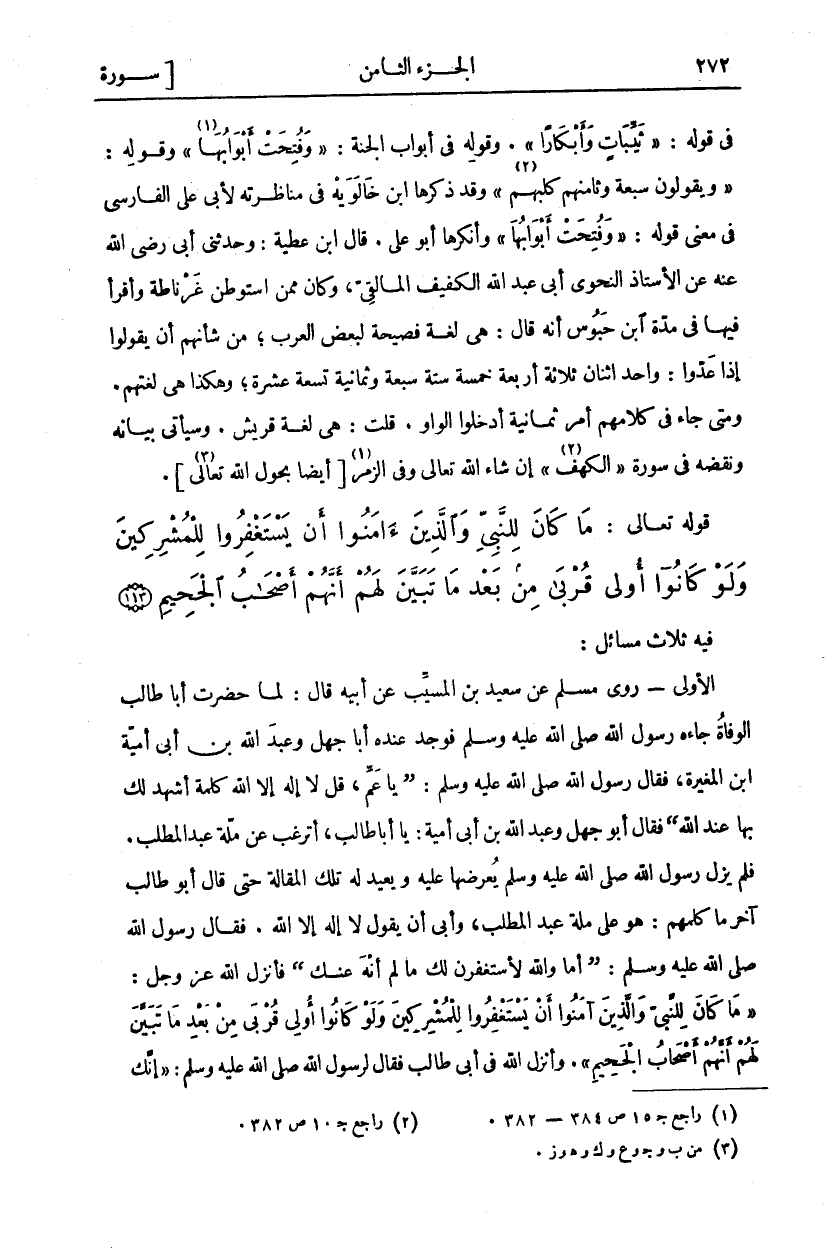 ٢٧٢ الجـــزء الثـامن [ ســورة
فى قوله : « ثَيِّبَاتٍ وَأَبْكَارًا » . وقوله فى أبواب الجنة : « وَفُتِحَتْ أَبْوَابُهَـا(١) » وقـوله :
« ويقولون سبعة وثامنهم كلبهـم(٢) » وقد ذكرها ابن خَالَوَيْه فى مناظـرته لأبى على الفـارسى
فى معنى قوله : « وَفُتِحَتْ أَبْوَابُهَا » وأنكرها أبو على . قال ابن عطية : وحدثنى أبى رضى الله
عنه عن الأستاذ النحوى أبى عبد الله الكفيف المـالقىّ ، وكان ممن استوطن غَرْناطة وأقرأ
فيهـا فى مدّة ٱبن حَبُوس أنه قال : هى لغـة فصيحة لبعض العرب ؛ من شأنهم أن يقولوا
إذا عَدّوا : واحد اثنان ثلاثة أربعة خمسة ستة سبعة وثمانية تسعة عشرة ؛ وهكذا هى لغتهم .
ومتى جاء فى كلامهم أمر ثمـانية أدخلوا الواو . قلت : هى لغـة قريش . وسيأتى بيـانه
ونقضه فى سورة « الكهف(٢) » إن شاء الله تعالى وفى الزمر(١) [ أيضا بحول الله تعالى(٣) ] .
قوله تعـالى : مَا كَانَ لِلنَّبِيِّ وَٱلَّذِينَ ءَامَنُوٓا أَن يَسْتَغْفِرُوا لِلْمُشْرِكِينَ
وَلَوْ كَانُوٓا أُولِى قُرْبَىٰ مِنۢ بَعْدِ مَا تَبَيَّنَ لَهُمْ أَنَّهُمْ أَصْحَـٰبُ ٱلْجَحِيمِ ١١٣
فيه ثلاث مسائل :
الأولى — روى مسـلم عن سعيد بن المسيِّب عن أبيه قال : لمـا حضرت أبا طالب
الوفاةُ جاءه رسول الله صلى الله عليه وسـلم فوجد عنده أبا جهل وعبدَ الله بن أبى أميّة
ابن المغيرة ، فقال رسول الله صلى الله عليه وسلم : ” يا عَمِّ ، قل لا إله إلا الله كلمة أشهد لك
بها عند الله “ فقال أبو جهل وعبد الله بن أبى أمية : يا أباطالب ، أترغب عن مِلّة عبد المطلب .
فلم يزل رسول الله صلى الله عليه وسلم يُعرضها عليه ويعيد له تلك المقالة حتى قال أبو طالب
آخر ما كلمهم : هو على ملة عبد المطلب ، وأبى أن يقول لا إله إلا الله . فقـال رسول الله
صلى الله عليه وســلم : ” أما والله لأستغفرن لك ما لم أُنْهَ عنـك “ فأنزل الله عـز وجل :
« مَا كَانَ لِلنَّبِىِّ وَالَّذِينَ آمَنُوا أَنْ يَسْتَغْفِرُوا لِلْمُشْرِكِينَ وَلَوْ كَانُوا أُولِى قُرْبَى مِنْ بَعْدِ مَا تَبَيَّنَ
لَهُمْ أَنَّهُمْ أَصْحَابُ الْجَحِيمِ » . وأنزل الله فى أبى طالب فقال لرسول الله صلى الله عليه وسلم : « إِنَّك
(١) راجع ج ١٥ ص ٣٨٤ — ٣٨٢ . (٢) راجع ج ١٠ ص ٣٨٢ .
(٣) من ب و ج و ع و ك و ه و ز .